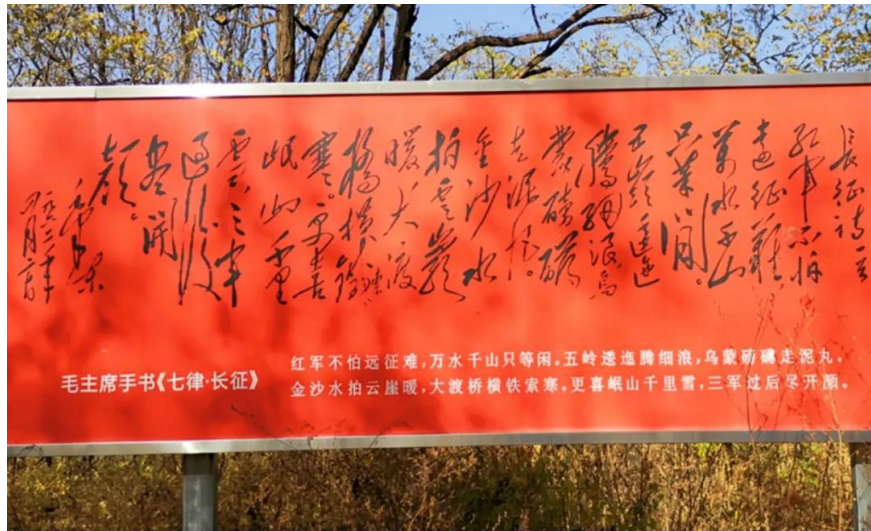 长征诗一首
红军不怕
远征难
万水千山
只等闲
五岭逶迤
腾细浪乌
蒙磅礴
走泥丸
金沙水
拍云崖
暖大渡
桥横铁索
寒更喜
岷山千里
雪三军
过后
尽开
颜
毛泽东
毛主席手书《七律·长征》
红军不怕远征难,万水千山只等闲。五岭逶迤腾细浪,乌蒙磅礴走泥丸。
金沙水拍云崖暖,大渡桥横铁索寒。更喜岷山千里雪,三军过后尽开颜。